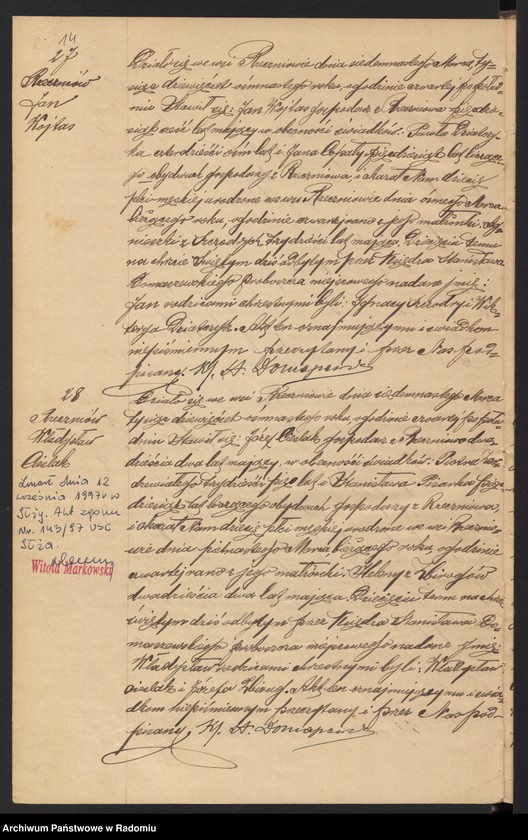 14
27
Rzeczniów
Jan
Kojtas
Działo się we wsi Rzeczniowie dnia siedemnastego Marca, ty-
siąc dziewięćset ośmnastego roku, o godzinie czwartej popołud-
niu. Stawił się: Jan Kojtas gospodarz z Rzeczniowa
lat mający w obecności świadków: Pawła
czterdzieści ośm lat i Jana lat liczące-
go obydwóch gospodarzy z Rzeczniowa, i okazał Nam dziecię
płci męskiej urodzone we wsi Rzeczniowie dnia ósmego Marca
bieżącego roku, o godzinie czwartej rano z jego małżonki Ag-
nieszki z trzydzieści lat mającą. Dziecięciu temu
na chrzcie Świętym dziś odbytym przez Księdza Stanisława
Domaszewskiego Proboszcza miejscowego nadano imię:
Jan rodzicami chrzestnymi byli: Ignacy i Wik-
torja Akt ten oznajmującemu i świadkom
niepiśmiennym przeczytany i przez Nas pod-
pisany. Kś. St.
28
Rzeczniów
Władysław
Cieślak
Zmarł dnia 12
września 1997 r w
Iłży. Akt zgonu
Nr. 143/97 USC
Iłża.
Witold Markowski
Działo się we wsi Rzeczniowie dnia siedemnastego Marca
tysiąc dziewięćset ośmnastego roku, o godzinie czwartej popołu-
dniu. Stawił się: Józef Cieślak gospodarz z Rzeczniowa dwa-
dzieścia dwa lat mający, w obecności świadków: Piotra
trzydzieści lat i Stanisława
lat liczącego obydwóch gospodarzy z Rzeczniowa,
i okazał Nam dziecię płci męskiej urodzone we wsi Rzecznio-
wie dnia piętnastego Marca bieżącego roku, o godzinie
czwartej rano z jego małżonki Heleny z
dwadzieścia dwa lat mającą. Dziecięciu temu na chrzcie
świętym dziś odbytym przez Księdza Stanisława Do-
maszewskiego Proboszcza miejscowego nadano imię:
Władysław rodzicami chrzestnymi byli: Władysław
i Józefa Akt ten oznajmującemu i świad-
kom niepiśmiennym przeczytany i przez Nas pod-
pisany. Kś. St.
Archiwum Państwowe w Radomiu